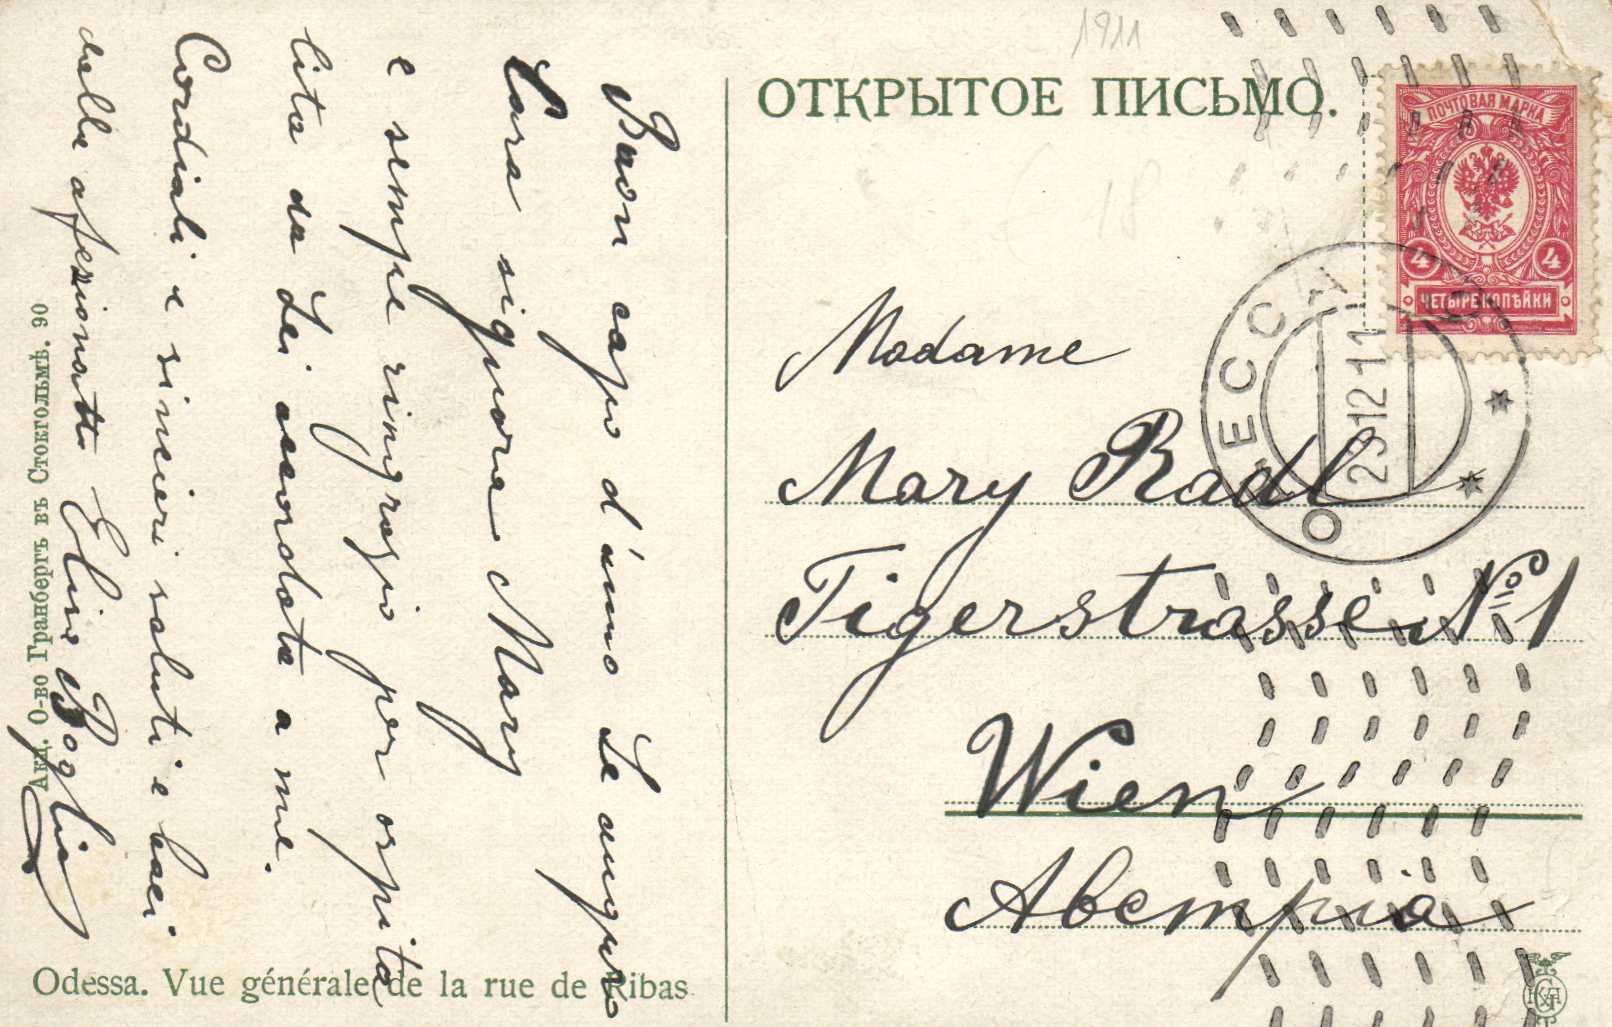 1911
ОТКРЫТОЕ ПИСЬМО.
ПОЧТОВАЯ МАРКА
4 4
ЧЕТЫРЕ КОПѢЙКИ
ОДЕССА
29 12 11
18
Madame
Mary Radl
Tigerstrasse No 1
Wien
Австрiа
Buon capo d'anno Le auguro
Cara signora Mary
e sempre ringrazio per ospita
lità da Lei accordata a me.
Cordiali e sinceri saluti e baci
dalla afezionatta Elisa
Акц. О-во Гранбергъ въ Стокгольмѣ. 90
Odessa. Vue générale de la rue de Ribas